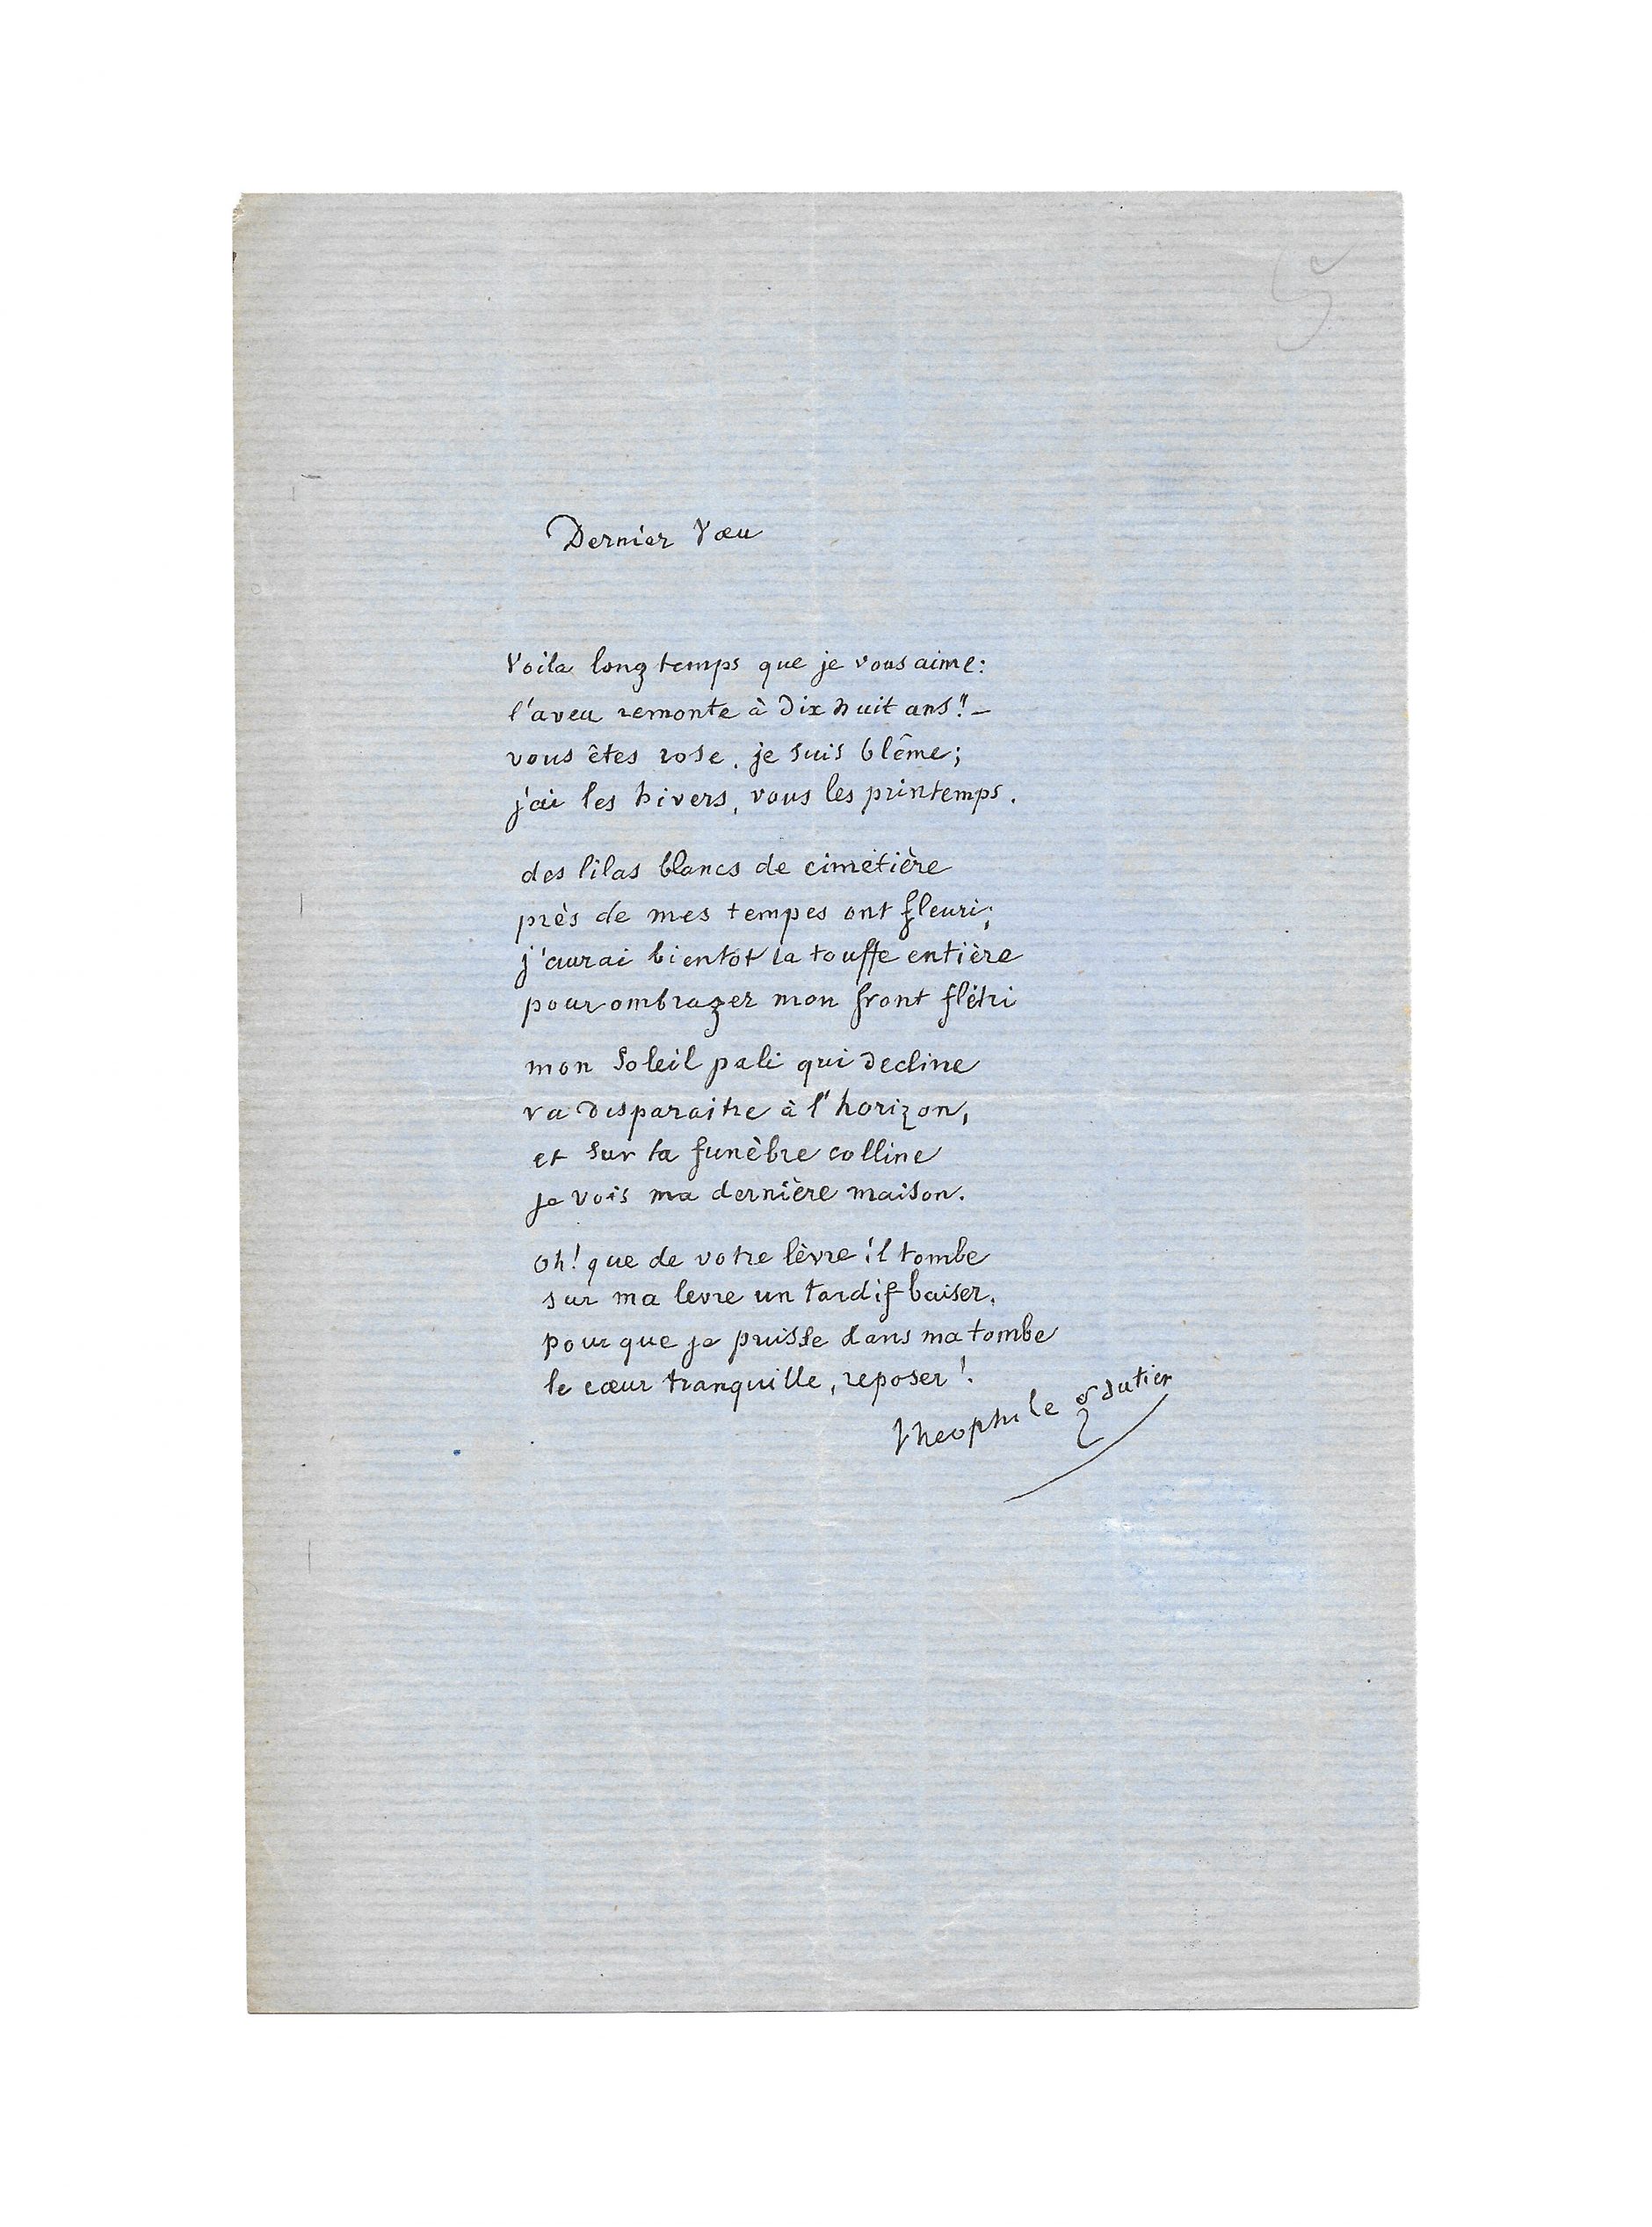 Dernier Vœu
Voila longtemps que je vous aime:
l'aveu remonte à dix huit ans! –
vous êtes rose, je suis blême;
j'ai les hivers, vous les printemps.
des lilas blancs de cimetière
près de mes tempes ont fleuri;
j'aurai bientot la touffe entière
pour ombrager mon front flétri
mon Soleil pali qui decline
va disparaitre à l'horizon,
et sur la funèbre colline
je vois ma dernière maison.
oh! que de votre lèvre il tombe
sur ma levre un tardif baiser,
pour que je puisse dans ma tombe
le cœur tranquille, reposer!
theophile Gautier